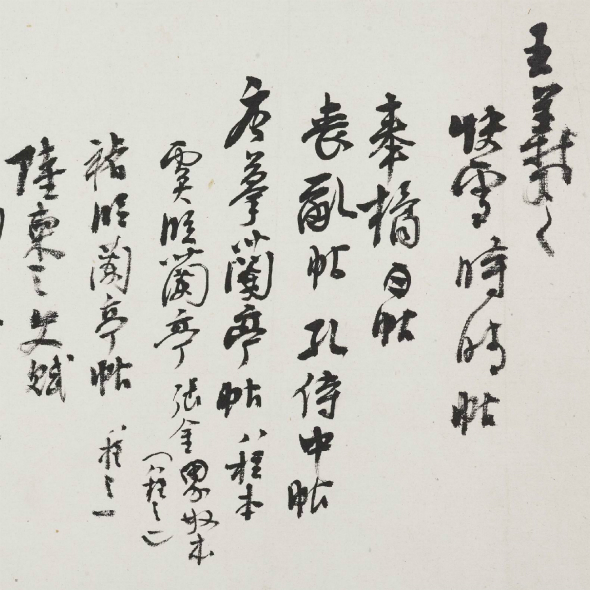 王羲之
快雪時晴帖
奉橘帖
喪亂帖 孔侍中帖
唐摹蘭亭帖 八柱本
虞臨蘭亭 張金界奴本
(八柱之一)
褚臨蘭亭帖 八柱之一
陸柬之文賦